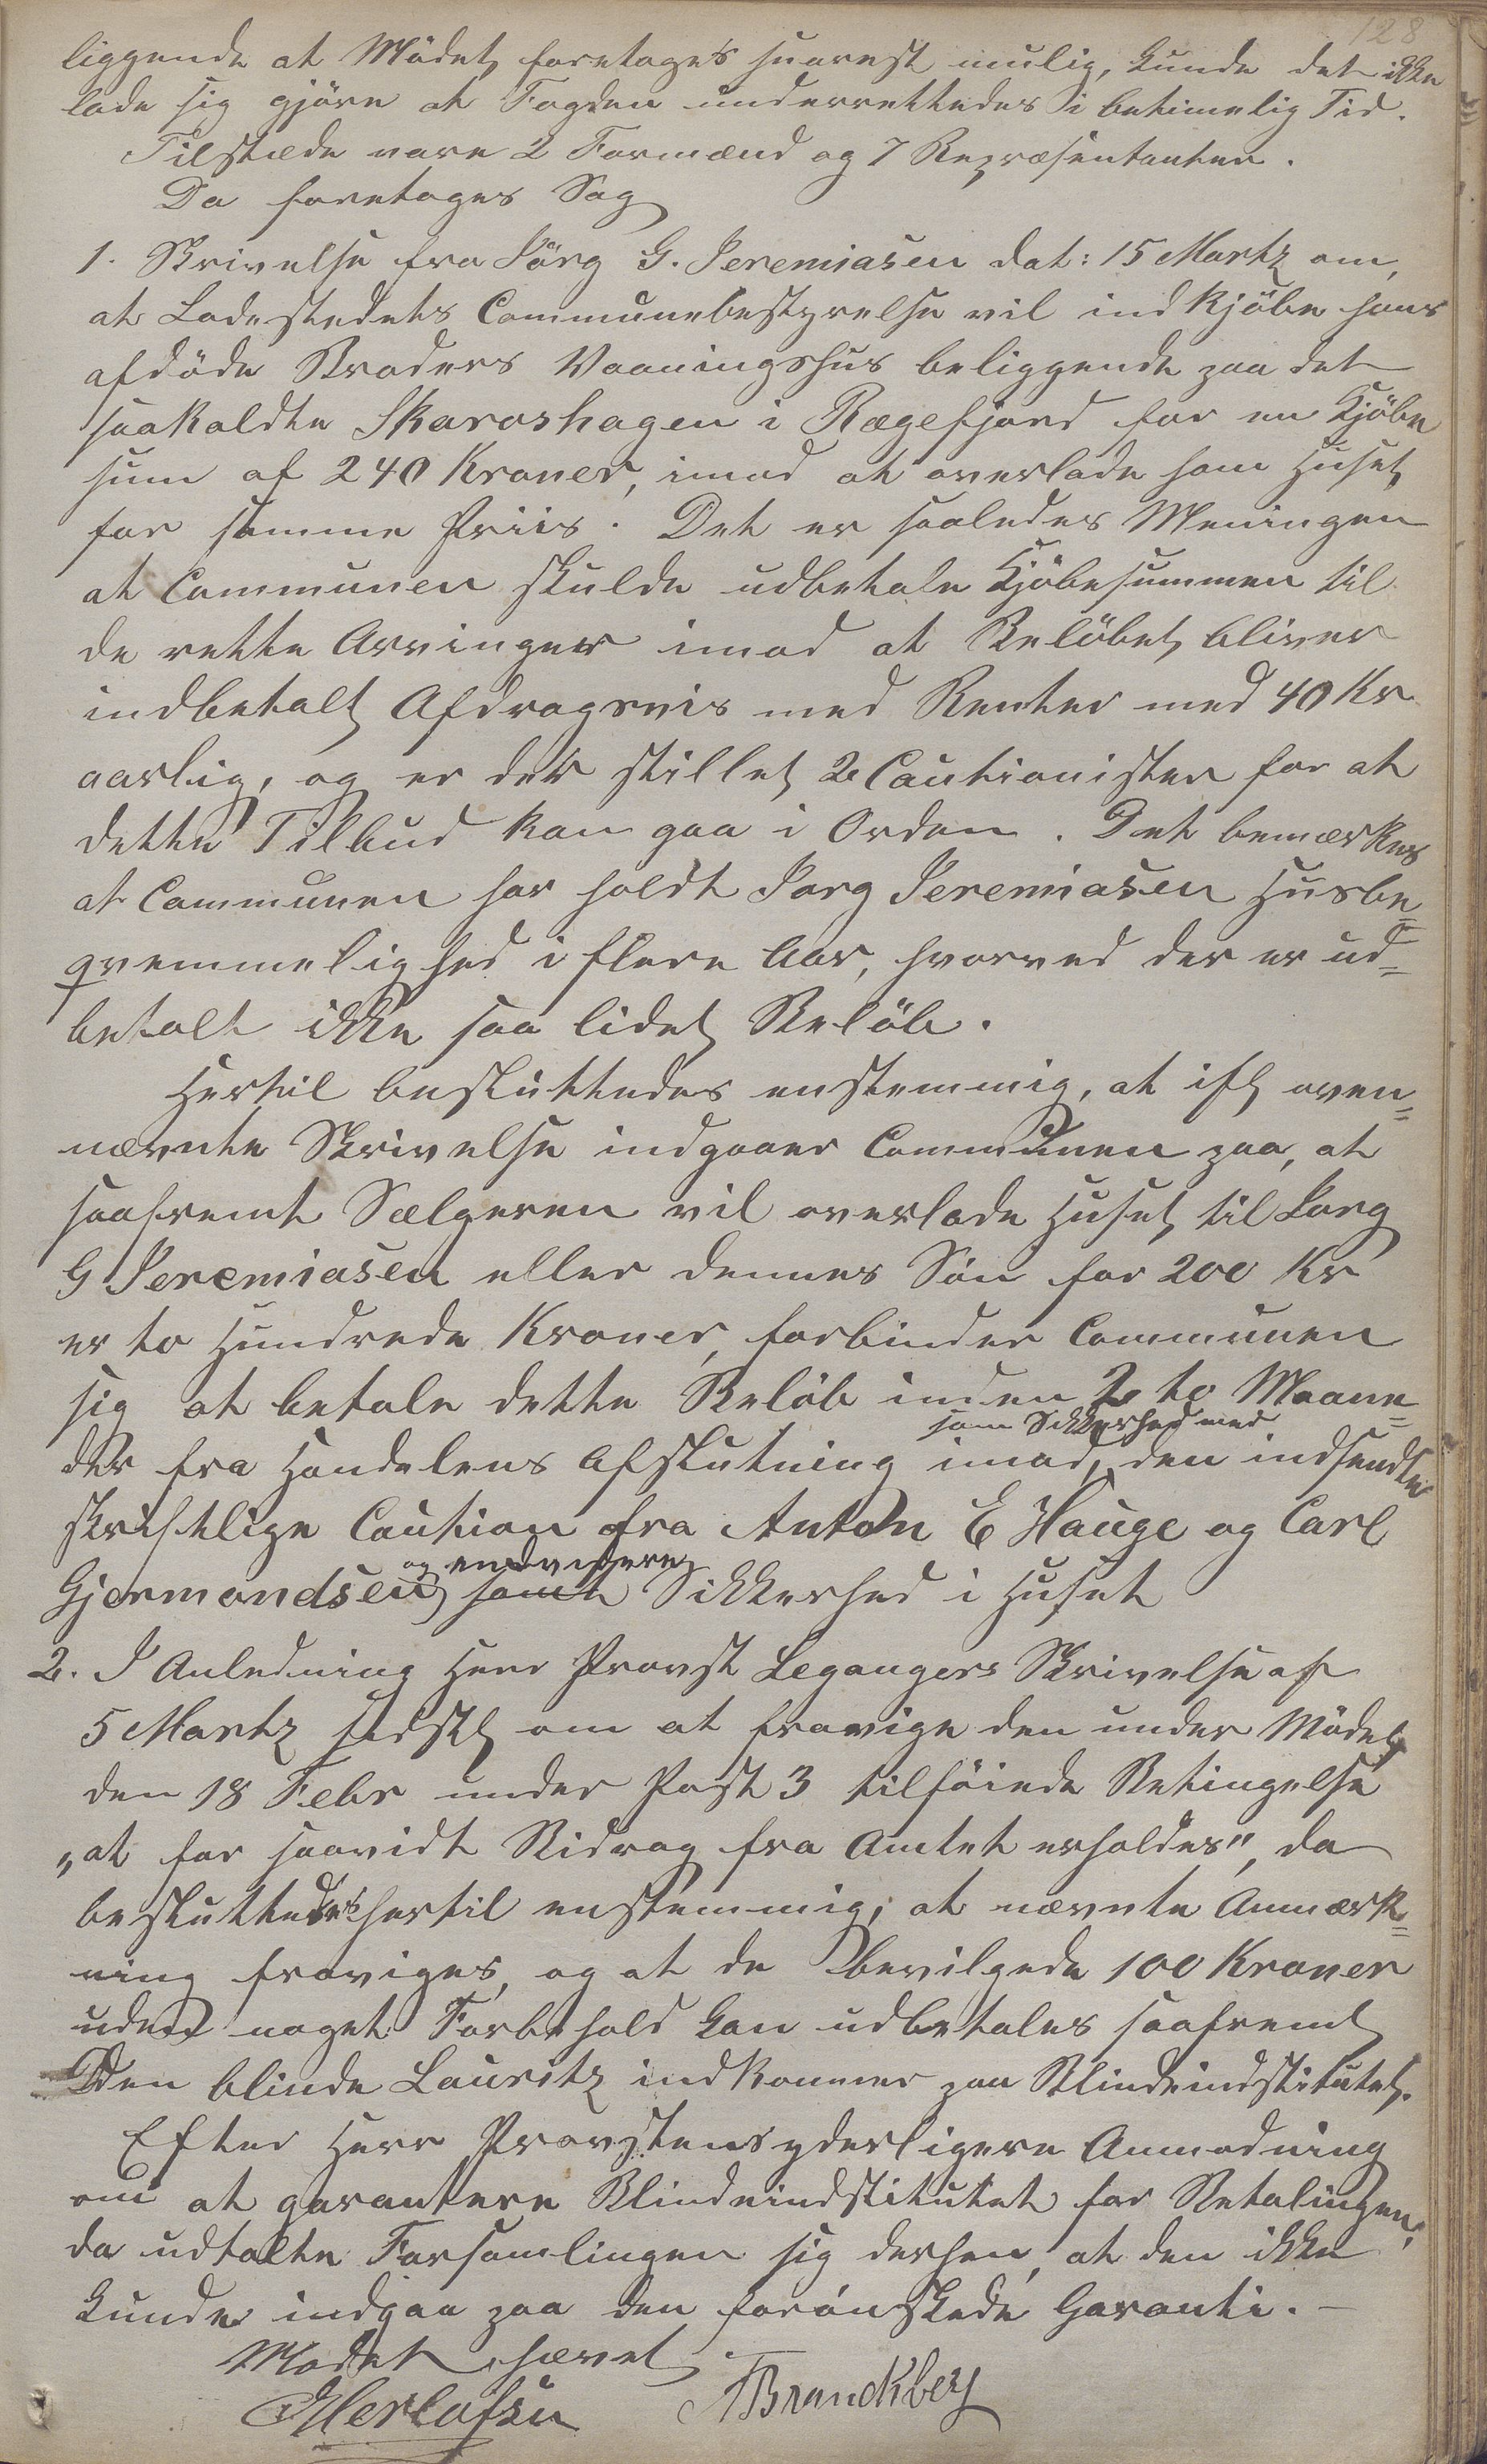 128
liggende at Mödet foretages snarest mulig, kunde det ikke
lade sig gjöre at Fogden underrettedes i betimelig Tid.
Tilstede vare 2 Formænd og 7 Repræsentanter.
Da foretoges Sag
1. Skrivelse fra Jörg G. Jeremiasen dat: 15 Martz om,
at Ladestedets Communebestyrelse vil indkjöbe hans
afdöde Broders Vaaningshus beliggende paa det
saakaldte Skaroshagen i Rægefjord for en Kjöbe
sum af 240 Kroner, imod at overlade ham Huset
for samme Priis. Det er saaledes Meningen
at Communen skulde udbetale Kjöbesummen til
de rette Arvinger imod at Belöbet bliver
indbetalt Afdragsvis med Renter med 40 Kr
aarlig, og er der stillet 2 Cautionister for at
dette Tilbud kan gaa i Orden. Det bemærkes
at Communen har holdt Jorg Jeremiasen Husbe=
qvemmelighed i flere Aar, hvorved der er ud=
betalt ikke saa lidet Belöb.
Hertil besluttedes enstemmig, at ifl oven=
nævnte Skrivelse indgaaer Communen paa, at
saafremt Sælgeren vil overlade Huset til Jorg
G Jeremiasen eller dennes Sön for 200 Kr
er to Hundrede Kroner, forbinder Communen
sig at betale dette Belöb inden 2 to Maane=
der fra Handelens Afslutning imod, som Sikkerhed med den indsendte
skriftlige Caution fra Anton E Hauge og Carl
Gjermondsen og endvidere samt Sikkerhed i Huset
2. I Anledning Herr Provst Legangers Skrivelse af
5 Martz sidstl om at fravige den under Mödet
den 18 Febr under Post 3 tilföiede Betingelse
„at for saavidt Bidrag fra Amtet erholdes", da
besluttedes hertil enstemmig, at nævnte Anmærk=
ning fraviges, og at de bevilgede 100 Kroner
uden noget Forbehold kan udbetales saafremt
Den blinde Lauritz indkommer paa Blindeindstitutet.
Efter Herr Provstens yderligere Anmodning
om at garantere Blindeindstitutet for Betalingen,
da udtalte Forsamlingen sig derhen, at den ikke
kunde indgaa paa den forönskede Garanti. –
Mödet hævet
Herlofsen ABranckberg